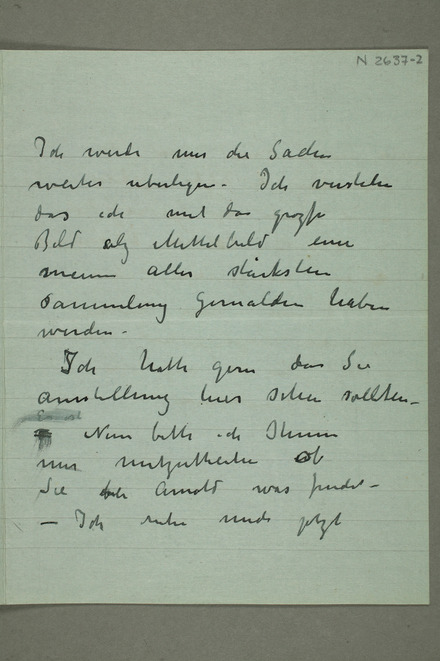 N 2637-2
Ich werde mir die Sachen
weiter uberlegen - Ich verstehe
das ich mit das grosse
Bild als Mittelbild eine
meine aller stärksten
Sammlung Gemälden haben
werden -
Ich hatte gern das Sie
ausstellung hier sehen sollten -
Nun bitte ich Ihnen
mir mitzutheilen ob
Sie bei Arnold was findet -
— Ich ruhe mich jetzt